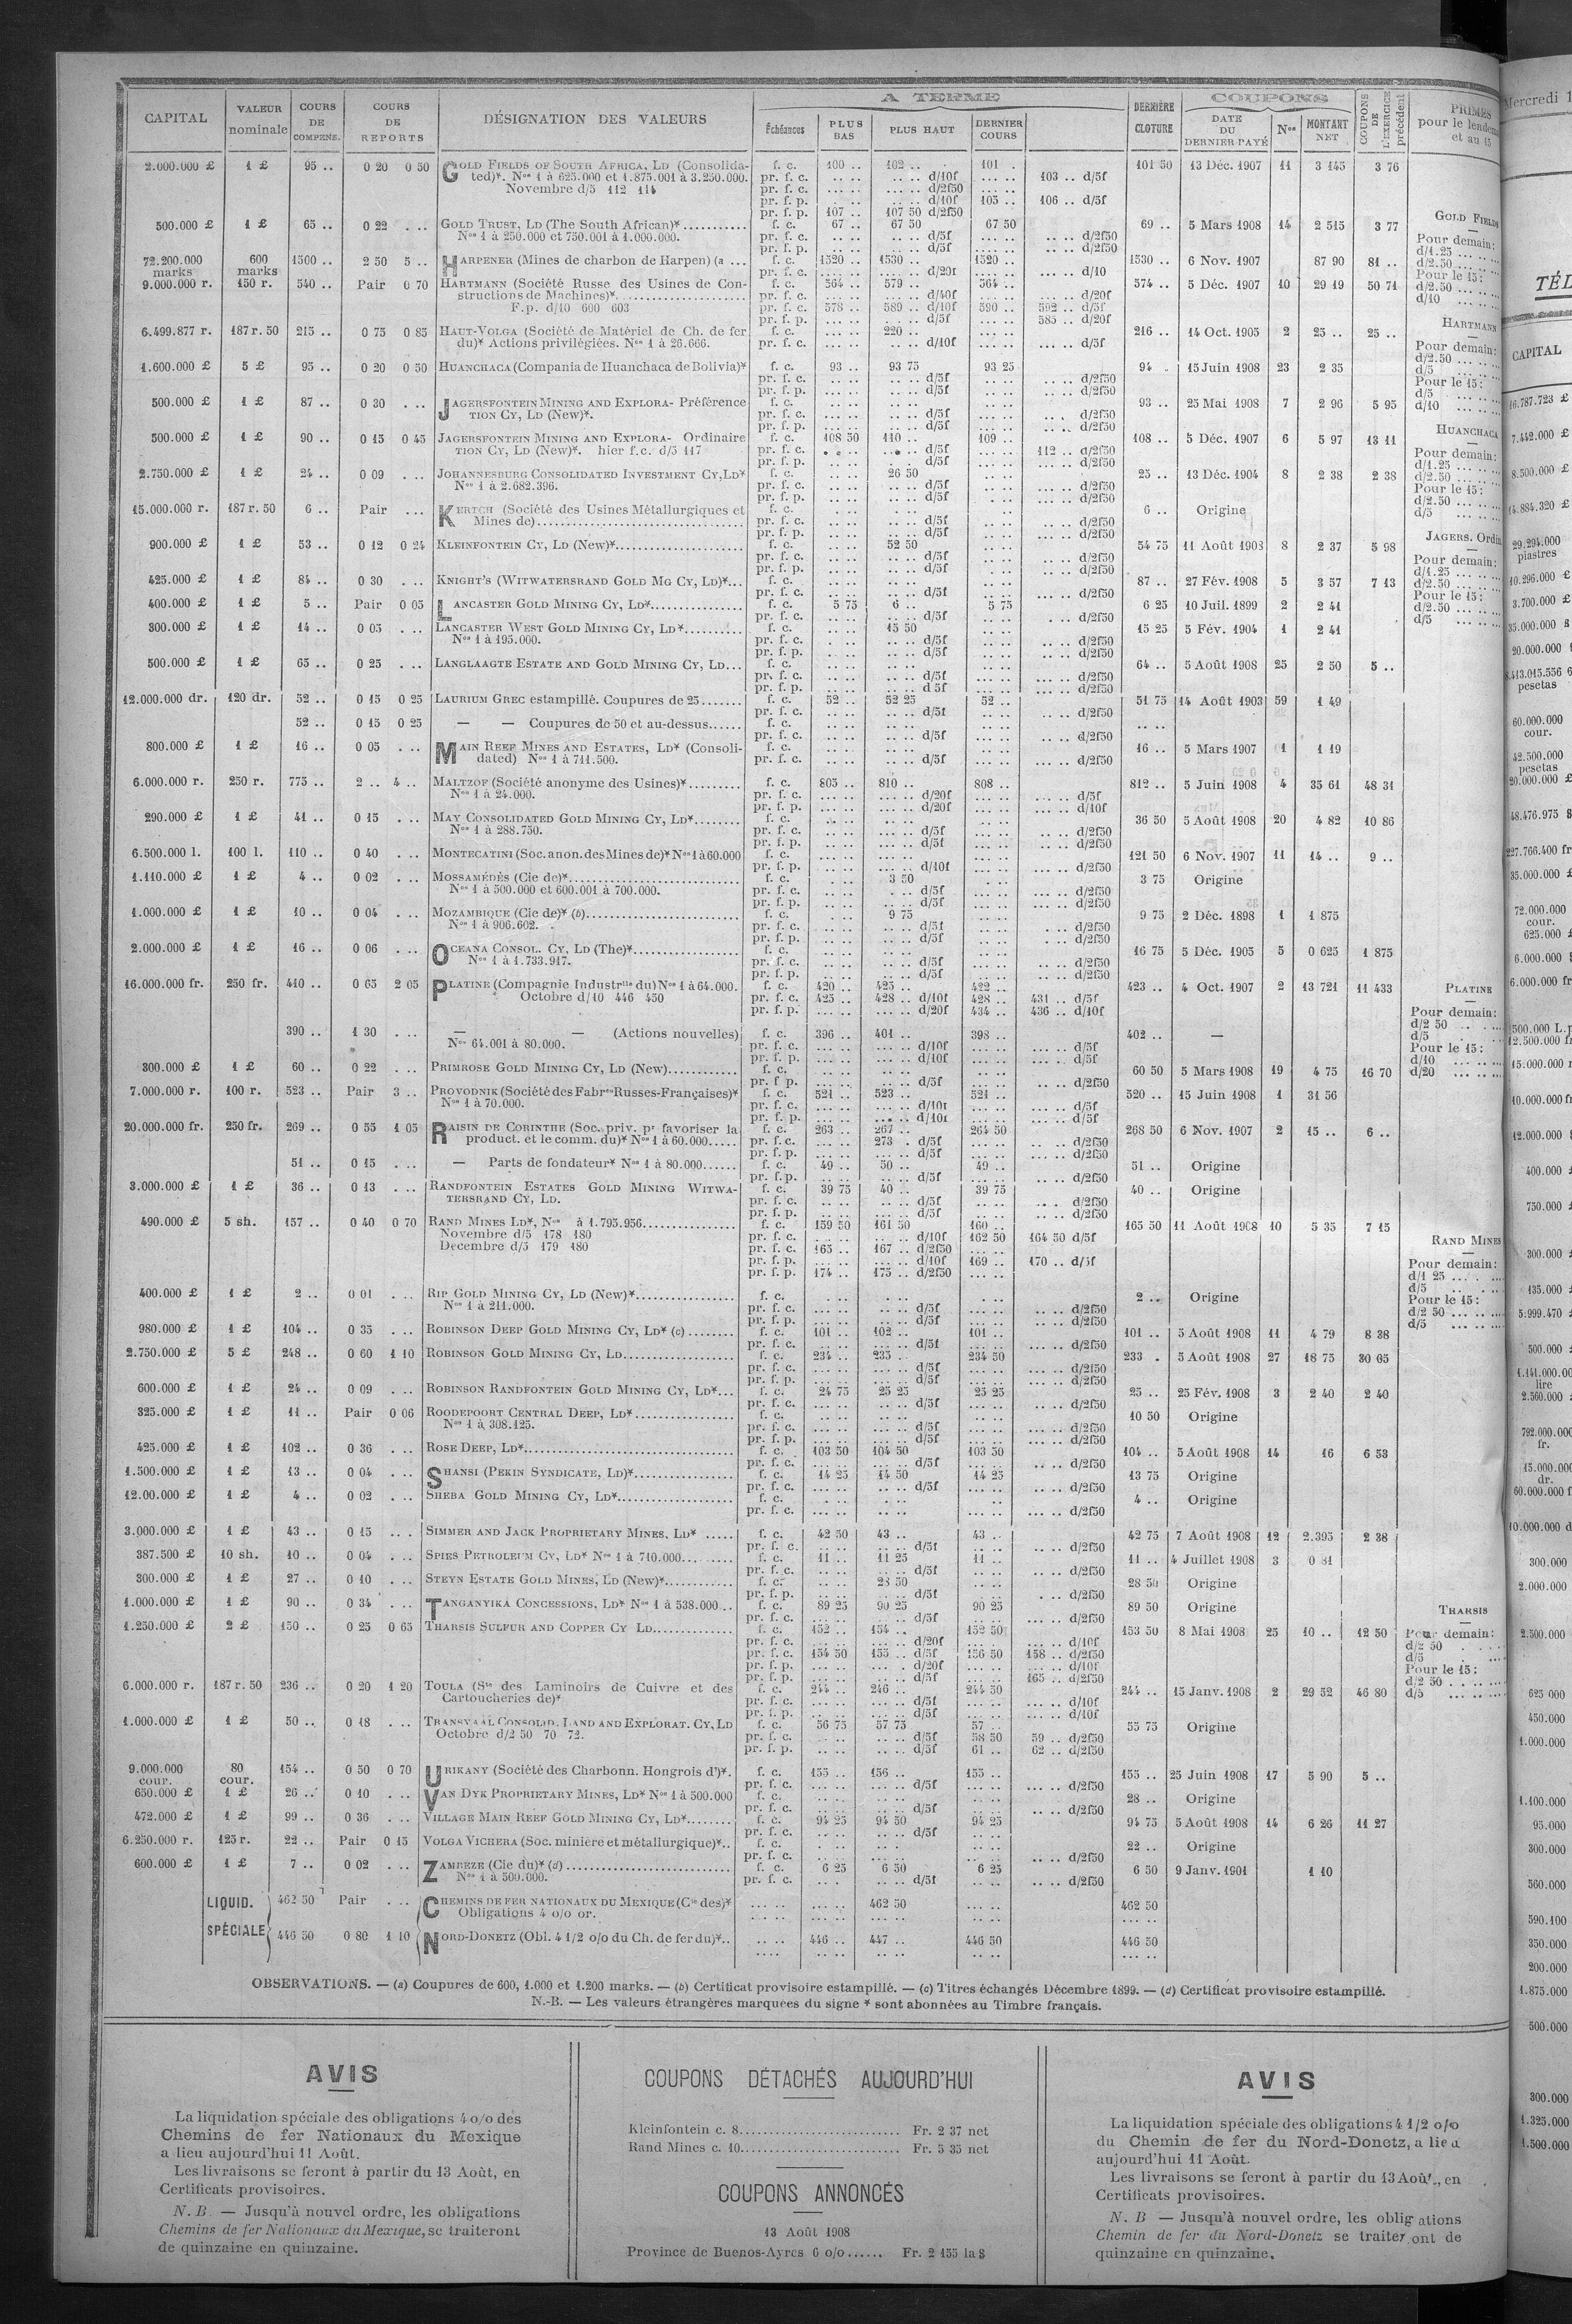 CAPITAL
VALEUR nominale
COURS DE COMPENS.
COURS DE REPORTS
DÉSIGNATION DES VALEURS
A TERME
Échéances
PLUS BAS
PLUS HAUT
DERNIER COURS
DERNIÈRE CLOTURE
COUPONS
DATE DU DERNIER PAYÉ
Nos
MONTANT NET
COUPONS DE L'EXERCICE précédent
PRIMES
2.000.000 £ 1 £ 95 .. 0 20 0 50 GOLD FIELDS OF SOUTH AFRICA, LD (Consolida- f. c. 100 .. 102 .. 101 . 101 50 13 Déc. 1907 11 3 145 3 76
ted)*. Nos 1 à 625.000 et 1.875.001 à 3.250.000. pr. f. c. .. .. .. .. d/10f .. .. 103 .. d/5f
Novembre d/5 112 114 pr. f. c. .. .. .. .. d/2f50
pr. f. p. .. .. d/10f 105 .. 106 .. d/5f
pr. f. p. 107 .. 107 50 d/2f50
500.000 £ 1 £ 65 .. 0 22 . .. GOLD TRUST, LD (The South African)* f. c. 67 .. 67 50 67 50 69 .. 5 Mars 1908 14 2 515 3 77
Nos 1 à 250.000 et 750.001 à 1.000.000. pr. f. c. .. .. .. .. d/5f .. .. d/2f50
pr. f. p. .. .. .. .. d/5f .. .. d/2f50
72.200.000 marks 600 marks 1500 .. 2 50 5 .. HARPENER (Mines de charbon de Harpen) (a ... f. c. 1520 .. 1530 .. 1520 .. 1530 .. 6 Nov. 1907 87 90 81 ..
pr. f. c. .... .. .... .. d/20f .... .. d/10
9.000.000 r. 150 r. 540 .. Pair 0 70 HARTMANN (Société Russe des Usines de Con- f. c. 564 .. 579 .. 564 .. 574 .. 5 Déc. 1907 10 29 19 50 71
structions de Machines)*. pr. f. c. ... .. ... .. d/40f ... .. d/20f
F.p. d/10 600 603 pr. f. c. 578 .. 589 .. d/10f 590 .. 592 .. d/5f
pr. f. p. ... .. ... .. d/5f ... .. 585 .. d/20f
6.499.877 r. 187 r. 50 215 .. 0 75 0 85 HAUT-VOLGA (Société de Matériel de Ch. de fer f. c. ... .. 220 .. 216 .. 14 Oct. 1905 2 25 .. 25 ..
du)* Actions privilégiées. Nos 1 à 26.666. pr. f. c. ... .. ... .. d/10f ... .. d/5f
1.600.000 £ 5 £ 95 .. 0 20 0 50 HUANCHACA (Compania de Huanchaca de Bolivia)* f. c. 93 .. 93 75 93 25 94 .. 15 Juin 1908 23 2 35
pr. f. c. .. .. .. .. d/5f .. .. d/2f50
pr. f. p. .. .. .. .. d/5f .. .. d/2f50
500.000 £ 1 £ 87 .. 0 30 . .. JAGERSFONTEIN MINING AND EXPLORA- Préférence f. c. 93 .. 25 Mai 1908 7 2 96 5 95
TION CY, LD (New)*. pr. f. c. .. .. .. .. d/5f .. .. d/2f50
pr. f. p. .. .. .. .. d/5f .. .. d/2f50
500.000 £ 1 £ 90 .. 0 15 0 45 JAGERSFONTEIN MINING AND EXPLORA- Ordinaire f. c. 108 50 110 .. 109 .. 108 .. 5 Déc. 1907 6 5 97 13 11
TION CY, LD (New)*. hier f.c. d/5 117 pr. f. c. .. .. .. .. d/5f 112 .. d/2f50
pr. f. p. .. .. .. .. d/5f .. .. d/2f50
2.750.000 £ 1 £ 24 .. 0 09 . .. JOHANNESBURG CONSOLIDATED INVESTMENT CY, LD* f. c. .. .. 26 50 25 .. 13 Déc. 1904 8 2 38 2 38
Nos 1 à 2.682.396. pr. f. c. .. .. .. .. d/5f .. .. d/2f50
pr. f. p. .. .. .. .. d/5f .. .. d/2f50
15.000.000 r. 187 r. 50 6 .. Pair ... KERTCH (Société des Usines Métallurgiques et f. c. 6 .. Origine
Mines de) pr. f. c. .. .. .. .. d/5f .. .. d/2f50
pr. f. p. .. .. .. .. d/5f .. .. d/2f50
900.000 £ 1 £ 53 .. 0 12 0 24 KLEINFONTEIN CY, LD (New)* f. c. .. .. 52 50 54 75 11 Août 1908 8 2 37 5 98
pr. f. c. .. .. .. .. d/5f .. .. d/2f50
pr. f. p. .. .. .. .. d/5f .. .. d/2f50
425.000 £ 1 £ 84 .. 0 30 . .. KNIGHT'S (WITWATERSRAND GOLD MG CY, LD)* f. c. 87 .. 27 Fév. 1908 5 3 57 7 13
pr. f. c. .. .. .. .. d/5f .. .. d/2f50
400.000 £ 1 £ 5 .. Pair 0 05 LANCASTER GOLD MINING CY, LD* f. c. 5 75 6 .. 5 75 6 25 10 Juil. 1899 2 2 41
pr. f. c. .. .. .. .. d/5f .. .. d/2f50
300.000 £ 1 £ 14 .. 0 05 . .. LANCASTER WEST GOLD MINING CY, LD* f. c. .. .. 15 50 15 25 5 Fév. 1904 1 2 41
Nos 1 à 195.000. pr. f. c. .. .. .. .. d/5f .. .. d/2f50
pr. f. p. .. .. .. .. d/5f .. .. d/2f50
500.000 £ 1 £ 65 .. 0 25 . .. LANGLAAGTE ESTATE AND GOLD MINING CY, LD f. c. 64 .. 5 Août 1908 25 2 50 5 ..
pr. f. c. .. .. .. .. d/5f .. .. d/2f50
pr. f. p. .. .. .. .. d/5f .. .. d/2f50
12.000.000 dr. 120 dr. 52 .. 0 15 0 25 LAURIUM GREC estampillé. Coupures de 25 f. c. 52 .. 52 25 52 .. 51 75 14 Août 1903 59 1 49
pr. f. c. .. .. .. .. d/5f .. .. d/2f50
52 .. 0 15 0 25 — — Coupures de 50 et au-dessus f. c. .. ..
pr. f. c. .. .. .. .. d/5f .. .. d/2f50
800.000 £ 1 £ 16 .. 0 05 . .. MAIN REEF MINES AND ESTATES, LD* (Consoli- f. c. 16 .. 5 Mars 1907 1 1 19
dated) Nos 1 à 711.500. pr. f. c. .. .. .. .. d/5f .. .. d/2f50
6.000.000 r. 250 r. 775 .. 2 .. 4 .. MALTZOF (Société anonyme des Usines)* f. c. 805 .. 810 .. 808 .. 812 .. 5 Juin 1908 4 35 61 48 31
Nos 1 à 24.000. pr. f. c. ... .. ... .. d/20f ... .. d/5f
pr. f. p. ... .. ... .. d/20f ... .. d/10f
290.000 £ 1 £ 41 .. 0 15 . .. MAY CONSOLIDATED GOLD MINING CY, LD* f. c. 36 50 5 Août 1908 20 4 82 10 86
Nos 1 à 288.750. pr. f. c. .. .. .. .. d/5f .. .. d/2f50
pr. f. p. .. .. .. .. d/5f .. .. d/2f50
6.500.000 l. 100 l. 110 .. 0 40 . .. MONTECATINI (Soc. anon. des Mines de)* Nos 1 à 60.000 f. c. 121 50 6 Nov. 1907 11 14 .. 9 ..
pr. f. p. ... .. ... .. d/10f ... .. d/2f50
1.110.000 £ 1 £ 4 .. 0 02 . .. MOSSAMÉDÈS (Cie de)* f. c. . .. 3 50 3 75 Origine
Nos 1 à 500.000 et 600.001 à 700.000. pr. f. c. .. .. .. .. d/5f .. .. d/2f50
pr. f. p. .. .. .. .. d/5f .. .. d/2f50
1.000.000 £ 1 £ 10 .. 0 04 . .. MOZAMBIQUE (Cie de)* (b) f. c. . .. 9 75 9 75 2 Déc. 1898 1 1 875
Nos 1 à 906.602. pr. f. c. .. .. .. .. d/5f .. .. d/2f50
pr. f. p. .. .. .. .. d/5f .. .. d/2f50
2.000.000 £ 1 £ 16 .. 0 06 . .. OCEANA CONSOL. CY, LD (The)* f. c. 16 75 5 Déc. 1905 5 0 625 1 875
Nos 1 à 1.733.917. pr. f. c. .. .. .. .. d/5f .. .. d/2f50
pr. f. p. .. .. .. .. d/5f .. .. d/2f50
16.000.000 fr. 250 fr. 410 .. 0 65 2 05 PLATINE (Compagnie Industrlle du) Nos 1 à 64.000. f. c. 420 .. 425 .. 422 .. 423 .. 4 Oct. 1907 2 13 721 11 433
Octobre d/10 446 450 pr. f. c. 425 .. 428 .. d/10f 428 .. 431 .. d/5f
pr. f. p. ... .. ... .. d/20f 434 .. 436 .. d/10f
390 .. 1 30 . .. — — (Actions nouvelles) f. c. 396 .. 401 .. 398 .. 402 .. —
Nos 64.001 à 80.000. pr. f. c. ... .. ... .. d/10f ... .. d/5f
pr. f. p. ... .. ... .. d/10f ... .. d/5f
300.000 £ 1 £ 60 .. 0 22 . .. PRIMROSE GOLD MINING CY, LD (New) f. c. 60 50 5 Mars 1908 19 4 75 16 70
pr. f. p. .. .. .. .. d/5f .. .. d/2f50
7.000.000 r. 100 r. 523 .. Pair 3 .. PROVODNIK (Société des Fabres Russes-Françaises)* f. c. 521 .. 523 .. 521 .. 520 .. 15 Juin 1908 1 31 56
Nos 1 à 70.000. pr. f. c. ... .. ... .. d/10f ... .. d/5f
pr. f. p. ... .. ... .. d/10f ... .. d/5f
20.000.000 fr. 250 fr. 269 .. 0 55 1 05 RAISIN DE CORINTHE (Soc. priv. pr favoriser la f. c. 263 .. 267 .. 264 50 268 50 6 Nov. 1907 2 15 .. 6 ..
product. et le comm. du)* Nos 1 à 60.000 pr. f. c. ... .. 273 . d/5f ... .. d/2f50
pr. f. p. ... .. ... .. d/5f ... .. d/2f50
51 .. 0 15 . .. — Parts de fondateur* Nos 1 à 80.000 f. c. 49 .. 50 .. 49 .. 51 .. Origine
pr. f. p. .. .. .. .. d/5f .. .. d/2f50
3.000.000 £ 1 £ 36 .. 0 13 . .. RANDFONTEIN ESTATES GOLD MINING WITWA- f. c. 39 75 40 .. 39 75 40 .. Origine
TERSRAND CY, LD. pr. f. c. .. .. .. .. d/5f .. .. d/2f50
pr. f. p. .. .. .. .. d/5f .. .. d/2f50
490.000 £ 5 sh. 157 .. 0 40 0 70 RAND MINES LD*, Nos à 1.795.956 f. c. 159 50 161 50 160 .. 165 50 11 Août 1908 10 5 35 7 15
Novembre d/5 178 180 pr. f. c. ... .. ... .. d/10f 162 50 164 50 d/5f
Decembre d/5 179 180 pr. f. c. 165 .. 167 .. d/2f50
pr. f. p. ... .. ... .. d/10f 169 .. 170 .. d/5f
pr. f. p. 174 .. 175 .. d/2f50
400.000 £ 1 £ 2 .. 0 01 . .. RIP GOLD MINING CY, LD (New)* f. c. 2 .. Origine
Nos 1 à 211.000. pr. f. c. .. .. .. .. d/5f .. .. d/2f50
pr. f. p. .. .. .. .. d/5f .. .. d/2f50
980.000 £ 1 £ 104 .. 0 35 . .. ROBINSON DEEP GOLD MINING CY, LD* (c) f. c. 101 .. 102 .. 101 .. 101 .. 5 Août 1908 11 4 79 8 38
pr. f. c. ... .. ... .. d/5f ... .. d/2f50
2.750.000 £ 5 £ 248 .. 0 60 1 10 ROBINSON GOLD MINING CY, LD f. c. 234 .. 235 .. 234 50 233 . 5 Août 1908 27 18 75 30 05
pr. f. c. ... .. ... .. d/5f ... .. d/2f50
pr. f. p. ... .. ... .. d/5f ... .. d/2f50
600.000 £ 1 £ 24 .. 0 09 . .. ROBINSON RANDFONTEIN GOLD MINING CY, LD* f. c. 24 75 25 25 25 25 25 .. 25 Fév. 1908 3 2 40 2 40
pr. f. c. .. .. .. .. d/5f .. .. d/2f50
325.000 £ 1 £ 11 .. Pair 0 06 ROODEPOORT CENTRAL DEEP, LD* f. c. 10 50 Origine
Nos 1 à 308.125. pr. f. c. .. .. .. .. d/5f .. .. d/2f50
pr. f. p. .. .. .. .. d/5f .. .. d/2f50
425.000 £ 1 £ 102 .. 0 36 . .. ROSE DEEP, LD* f. c. 103 50 104 50 103 50 104 .. 5 Août 1908 14 16 6 53
pr. f. c. ... .. ... .. d/5f ... .. d/2f50
1.500.000 £ 1 £ 13 .. 0 04 . .. SHANSI (PEKIN SYNDICATE, LD)* f. c. 14 25 14 50 14 25 13 75 Origine
pr. f. c. .. .. .. .. d/5f .. .. d/2f50
12.00.000 £ 1 £ 4 .. 0 02 . .. SHEBA GOLD MINING CY, LD* f. c. 4 .. Origine
pr. f. c. .. .. d/2f50
3.000.000 £ 1 £ 43 .. 0 15 .. . SIMMER AND JACK PROPRIETARY MINES, LD* f. c. 42 50 43 .. 43 .. 42 75 7 Août 1908 12 2.395 2 38
pr. f. c. .. .. .. .. d/5f .. .. d/2f50
387.500 £ 10 sh. 10 .. 0 04 . .. SPIES PETROLEUM CY, LD* Nos 1 à 710.000 f. c. 11 .. 11 25 11 .. 11 .. 4 Juillet 1908 3 0 81
pr. f. c. .. .. .. .. d/5f .. .. d/2f50
300.000 £ 1 £ 27 .. 0 10 . .. STEYN ESTATE GOLD MINES, LD (New)* f. c. .. .. 28 50 28 50 Origine
pr. f. p. .. .. .. .. d/5f .. .. d/2f50
1.000.000 £ 1 £ 90 .. 0 34 . .. TANGANYIKA CONCESSIONS, LD* Nos 1 à 538.000 f. c. 89 25 90 25 90 25 89 50 Origine
pr. f. c. .. .. .. .. d/5f .. .. d/2f50
1.250.000 £ 2 £ 150 .. 0 25 0 65 THARSIS SULFUR AND COPPER CY LD f. c. 152 .. 154 .. 152 50 153 50 8 Mai 1908 25 10 .. 12 50
pr. f. c. ... .. ... .. d/20f ... .. d/10f
pr. f. c. 154 50 155 .. d/5f 156 50 158 .. d/2f50
pr. f. p. ... .. ... . d/20f ... .. d/10f
pr. f. p. ... .. ... .. d/5f 165 .. d/2f50
6.000.000 r. 187 r. 50 236 .. 0 20 1 20 TOULA (Sté des Laminoirs de Cuivre et des f. c. 244 .. 246 .. 244 50 244 .. 15 Janv. 1908 2 29 52 46 80
Cartoucheries de)* pr. f. c. ... .. ... .. d/5f ... .. d/10f
pr. f. p. ... .. ... .. d/5f ... .. d/10f
1.000.000 £ 1 £ 50 .. 0 18 . .. TRANSVAAL CONSOLID. LAND AND EXPLORAT. CY, LD f. c. 56 75 57 75 57 .. 55 75 Origine
Octobre d/2 50 70 72. pr. f. c. .. .. .. .. d/5f 58 50 59 .. d/2f50
pr. f. p. .. .. .. .. d/5f 61 .. 62 .. d/2f50
9.000.000 cour. 80 cour. 154 .. 0 50 0 70 URIKANY (Société des Charbonn. Hongrois d')*. f. c. 155 .. 156 .. 155 .. 155 .. 25 Juin 1908 17 5 90 5 ..
pr. f. c. ... .. ... .. d/5f ... .. d/2f50
650.000 £ 1 £ 26 .. 0 10 . .. VAN DYK PROPRIETARY MINES, LD* Nos 1 à 500.000 f. c. 28 .. Origine
pr. f. c. .. .. .. .. d/5f .. .. d/2f50
472.000 £ 1 £ 99 .. 0 36 . .. VILLAGE MAIN REEF GOLD MINING CY, LD* f. c. 94 25 94 50 94 25 94 75 5 Août 1908 14 6 26 11 27
pr. f. c. .. .. .. .. d/5f
6.250.000 r. 125 r. 22 .. Pair 0 15 VOLGA VICHERA (Soc. minière et métallurgique)* f. c. 22 .. Origine
pr. f. c. .. .. d/2f50
600.000 £ 1 £ 7 .. 0 02 . .. ZAMBEZE (Cie du)* (d) f. c. 6 25 6 50 6 25 6 50 9 Janv. 1901 1 10
Nos 1 à 500.000. pr. f. c. .. . .. .. d/5f .. .. d/2f50
LIQUID. SPÉCIALE
462 50 Pair . .. CHEMINS DE FER NATIONAUX DU MEXIQUE (Cie des)* ... .. ... .. 462 50 ... .. 462 50
Obligations 4 o/o or.
446 50 0 80 1 10 NORD-DONETZ (Obl. 4 1/2 o/o du Ch. de fer du)* .. .. 446 .. 447 .. 446 50 446 50
PRIMES
pour le
et au 15
GOLD FIELDS
Pour demain:
d/1.25
d/2.50
Pour le 15:
d/2.50
d/10
HARTMANN
Pour demain:
d/2.50
d/5
Pour le 15:
d/5
d/10
HUANCHACA
Pour demain:
d/1.25
d/2.50
Pour le 15:
d/2.50
d/5
JAGERS.
Pour demain:
d/1.25
d/2.50
Pour le 15:
d/2.50
d/5
PLATINE
Pour demain:
d/2 50
d/5
Pour le 15:
d/10
d/20
RAND MINES
Pour demain:
d/1 25
d/5
Pour le 15:
d/2 50
d/5
THARSIS
Pour demain:
d/2 50
d/5
Pour le 15:
d/2 50
d/5
OBSERVATIONS. — (a) Coupures de 600, 1.000 et 1.200 marks. — (b) Certificat provisoire estampillé. — (c) Titres échangés Décembre 1899. — (d) Certificat provisoire estampillé.
N.-B. — Les valeurs étrangères marquées du signe * sont abonnées au Timbre français.
AVIS
La liquidation spéciale des obligations 4 o/o des
Chemins de fer Nationaux du Mexique
a lieu aujourd'hui 11 Août.
Les livraisons se feront à partir du 13 Août, en
Certificats provisoires.
N. B. — Jusqu'à nouvel ordre, les obligations
Chemins de fer Nationaux du Mexique, se traiteront
de quinzaine en quinzaine.
COUPONS DÉTACHÉS AUJOURD'HUI
Kleinfontein c. 8 Fr. 2 37 net
Rand Mines c. 10 Fr. 5 35 net
COUPONS ANNONCÉS
13 Août 1908
Province de Buenos-Ayres 6 o/o Fr. 2 155 la $
AVIS
La liquidation spéciale des obligations 4 1/2 o/o
du Chemin de fer du Nord-Donetz, a lieu
aujourd'hui 11 Août.
Les livraisons se feront à partir du 13 Août, en
Certificats provisoires.
N. B — Jusqu'à nouvel ordre, les obligations
Chemin de fer du Nord-Donetz se traiteront de
quinzaine en quinzaine.
Mercredi 1
CAPITAL
16.787.723 £
7.442.000 £
8.500.000 £
14.884.320 £
29.294.000
piastres
10.296.000 £
3.700.000 £
35.000.000 $
20.000.000
pesetas
60.000.000
cour.
42.500.000
pesetas
20.000.000 £
48.476.975 $
227.766.400 fr
35.000.000 £
72.000.000
cour.
625.000 £
6.000.000 $
6.000.000 fr
500.000 L.
12.500.000 fr
15.000.000 r
10.000.000 fr
12.000.000 $
400.000
750.000
300.000 £
135.000 £
5.999.470 £
500.000
1.141.000.00
lire
2.560.000
792.000.000
fr.
15.000.000
dr.
60.000.000 f
10.000.000 d
300.000
2.000.000
2.500.000
625 000
450.000
1.000.000
1.100.000
95.000
300.000
560.000
590.100
350.000
200.000
1.875.000
500.000
300.000
1.325.000
1.500.000